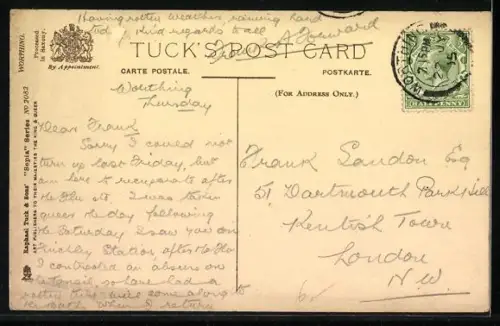 Having rotten weather, raining hard
Kind regards to all
TUCK'S POST CARD
CARTE POSTALE.
POSTKARTE.
(FOR ADDRESS ONLY.)
WORTHING.
Processed in Saxony.
By Appointment.
Raphael Tuck & Sons' "Sepia" Series No 2083
ART PUBLISHERS TO THEIR MAJESTIES THE KING & QUEEN
Worthing
Thursday
Dear Frank
Sorry I could not
turn up last Friday, but
am here to recuperate after
the I was taken
queer the day following
the Saturday I saw you on
Finchley Station, after the
I contracted an abscess on
so have had a
rotten time come along to
when I return
Frank Landon Esq
51 Dartmouth Park Hill
Kentish Town
London
N.W.
WORTHING
7.15 PM
JY
15
HALFPENNY